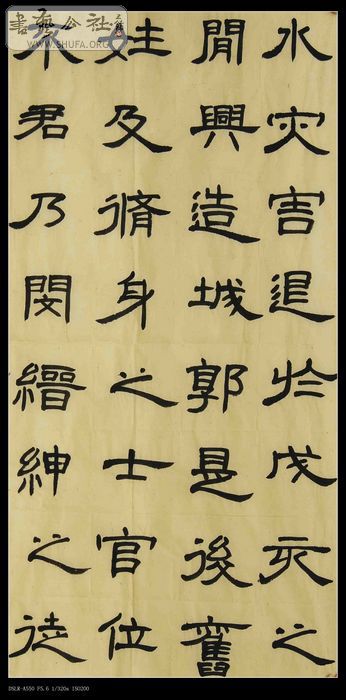 水灾害退於戌亥之
閒興造城郭是後舊
姓及脩身之士官位
不君乃閔縉紳之徒
書藝公社
WWW.SHUFA.ORG
DSLR-A550 F5.6 1/320s ISO200